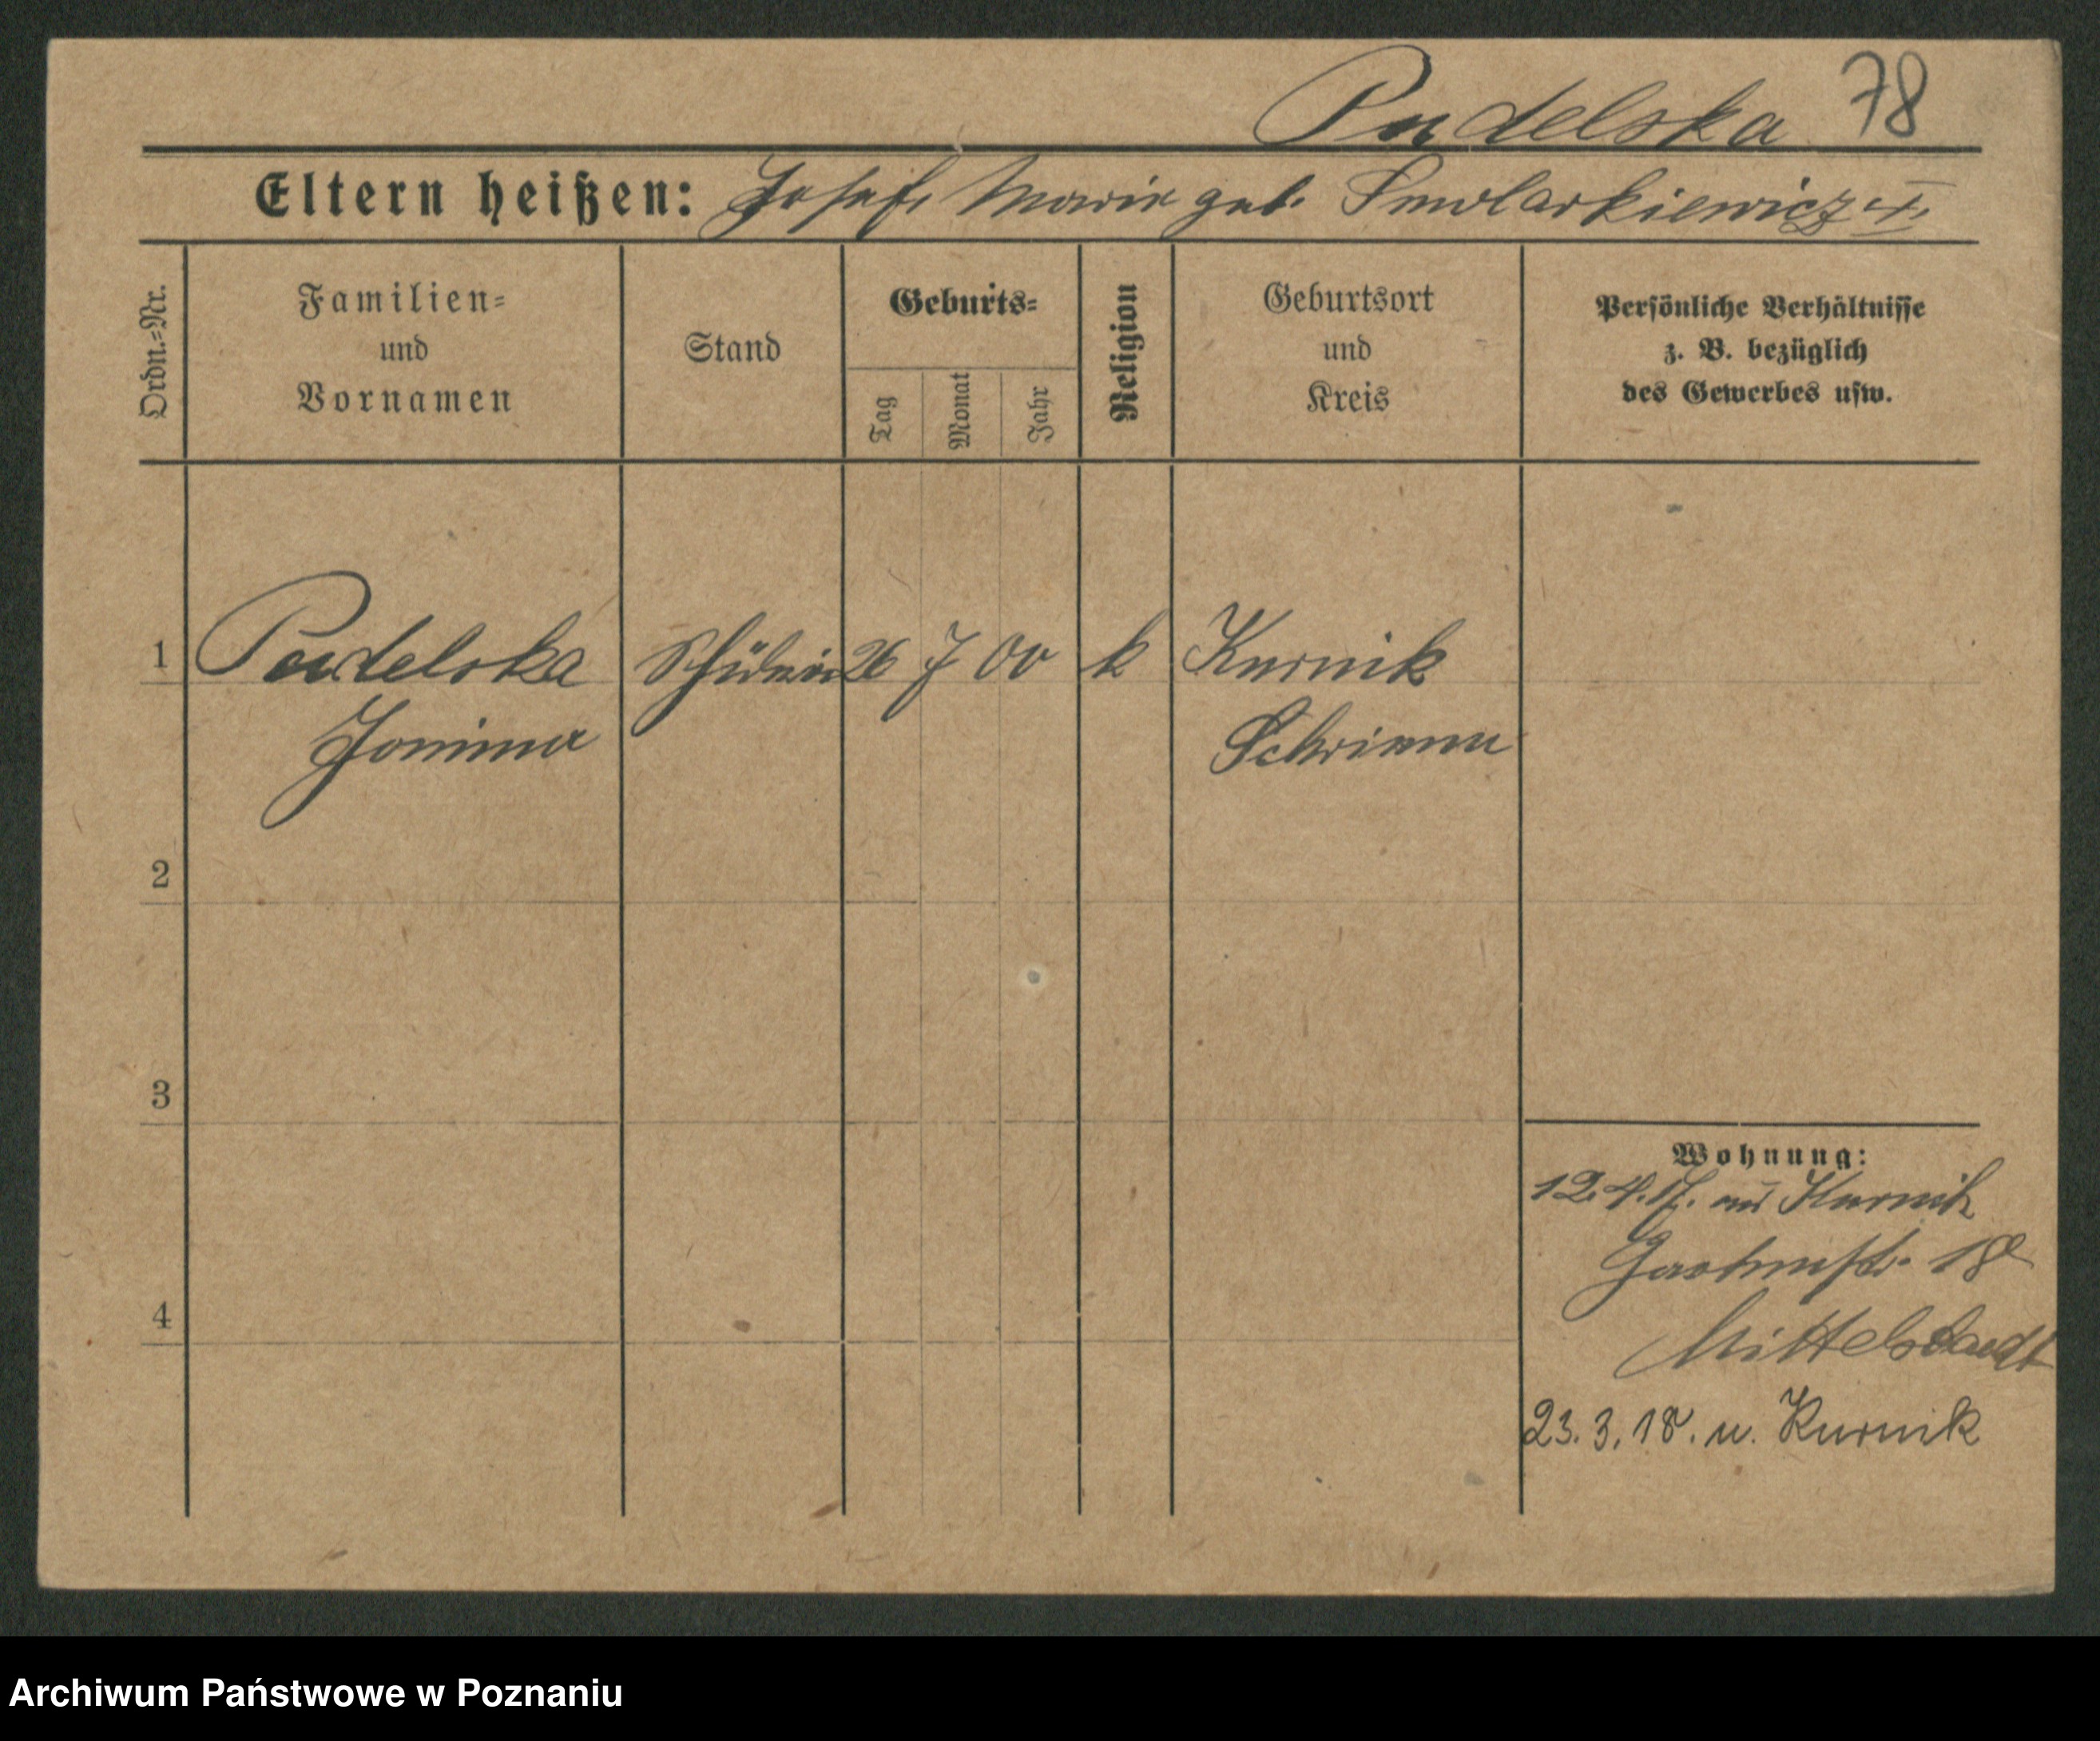 Pudelska 78
Eltern heißen: Josef, Marie geb. Smolarkiewicz
Ordn.-Nr.
Familien-
und
Vornamen
Stand
Geburts-
Tag
Monat
Jahr
Religion
Geburtsort
und
Kreis
Persönliche Verhältnisse
z. B. bezüglich
des Gewerbes usw.
1 Pudelska Schülerin 26 7 00 k Kurnik
Schrimm
2
3
4
Wohnung:
12.4.17. aus Kurnik
18
Mittelstaedt
23. 3. 18. n. Kurnik
Archiwum Państwowe w Poznaniu